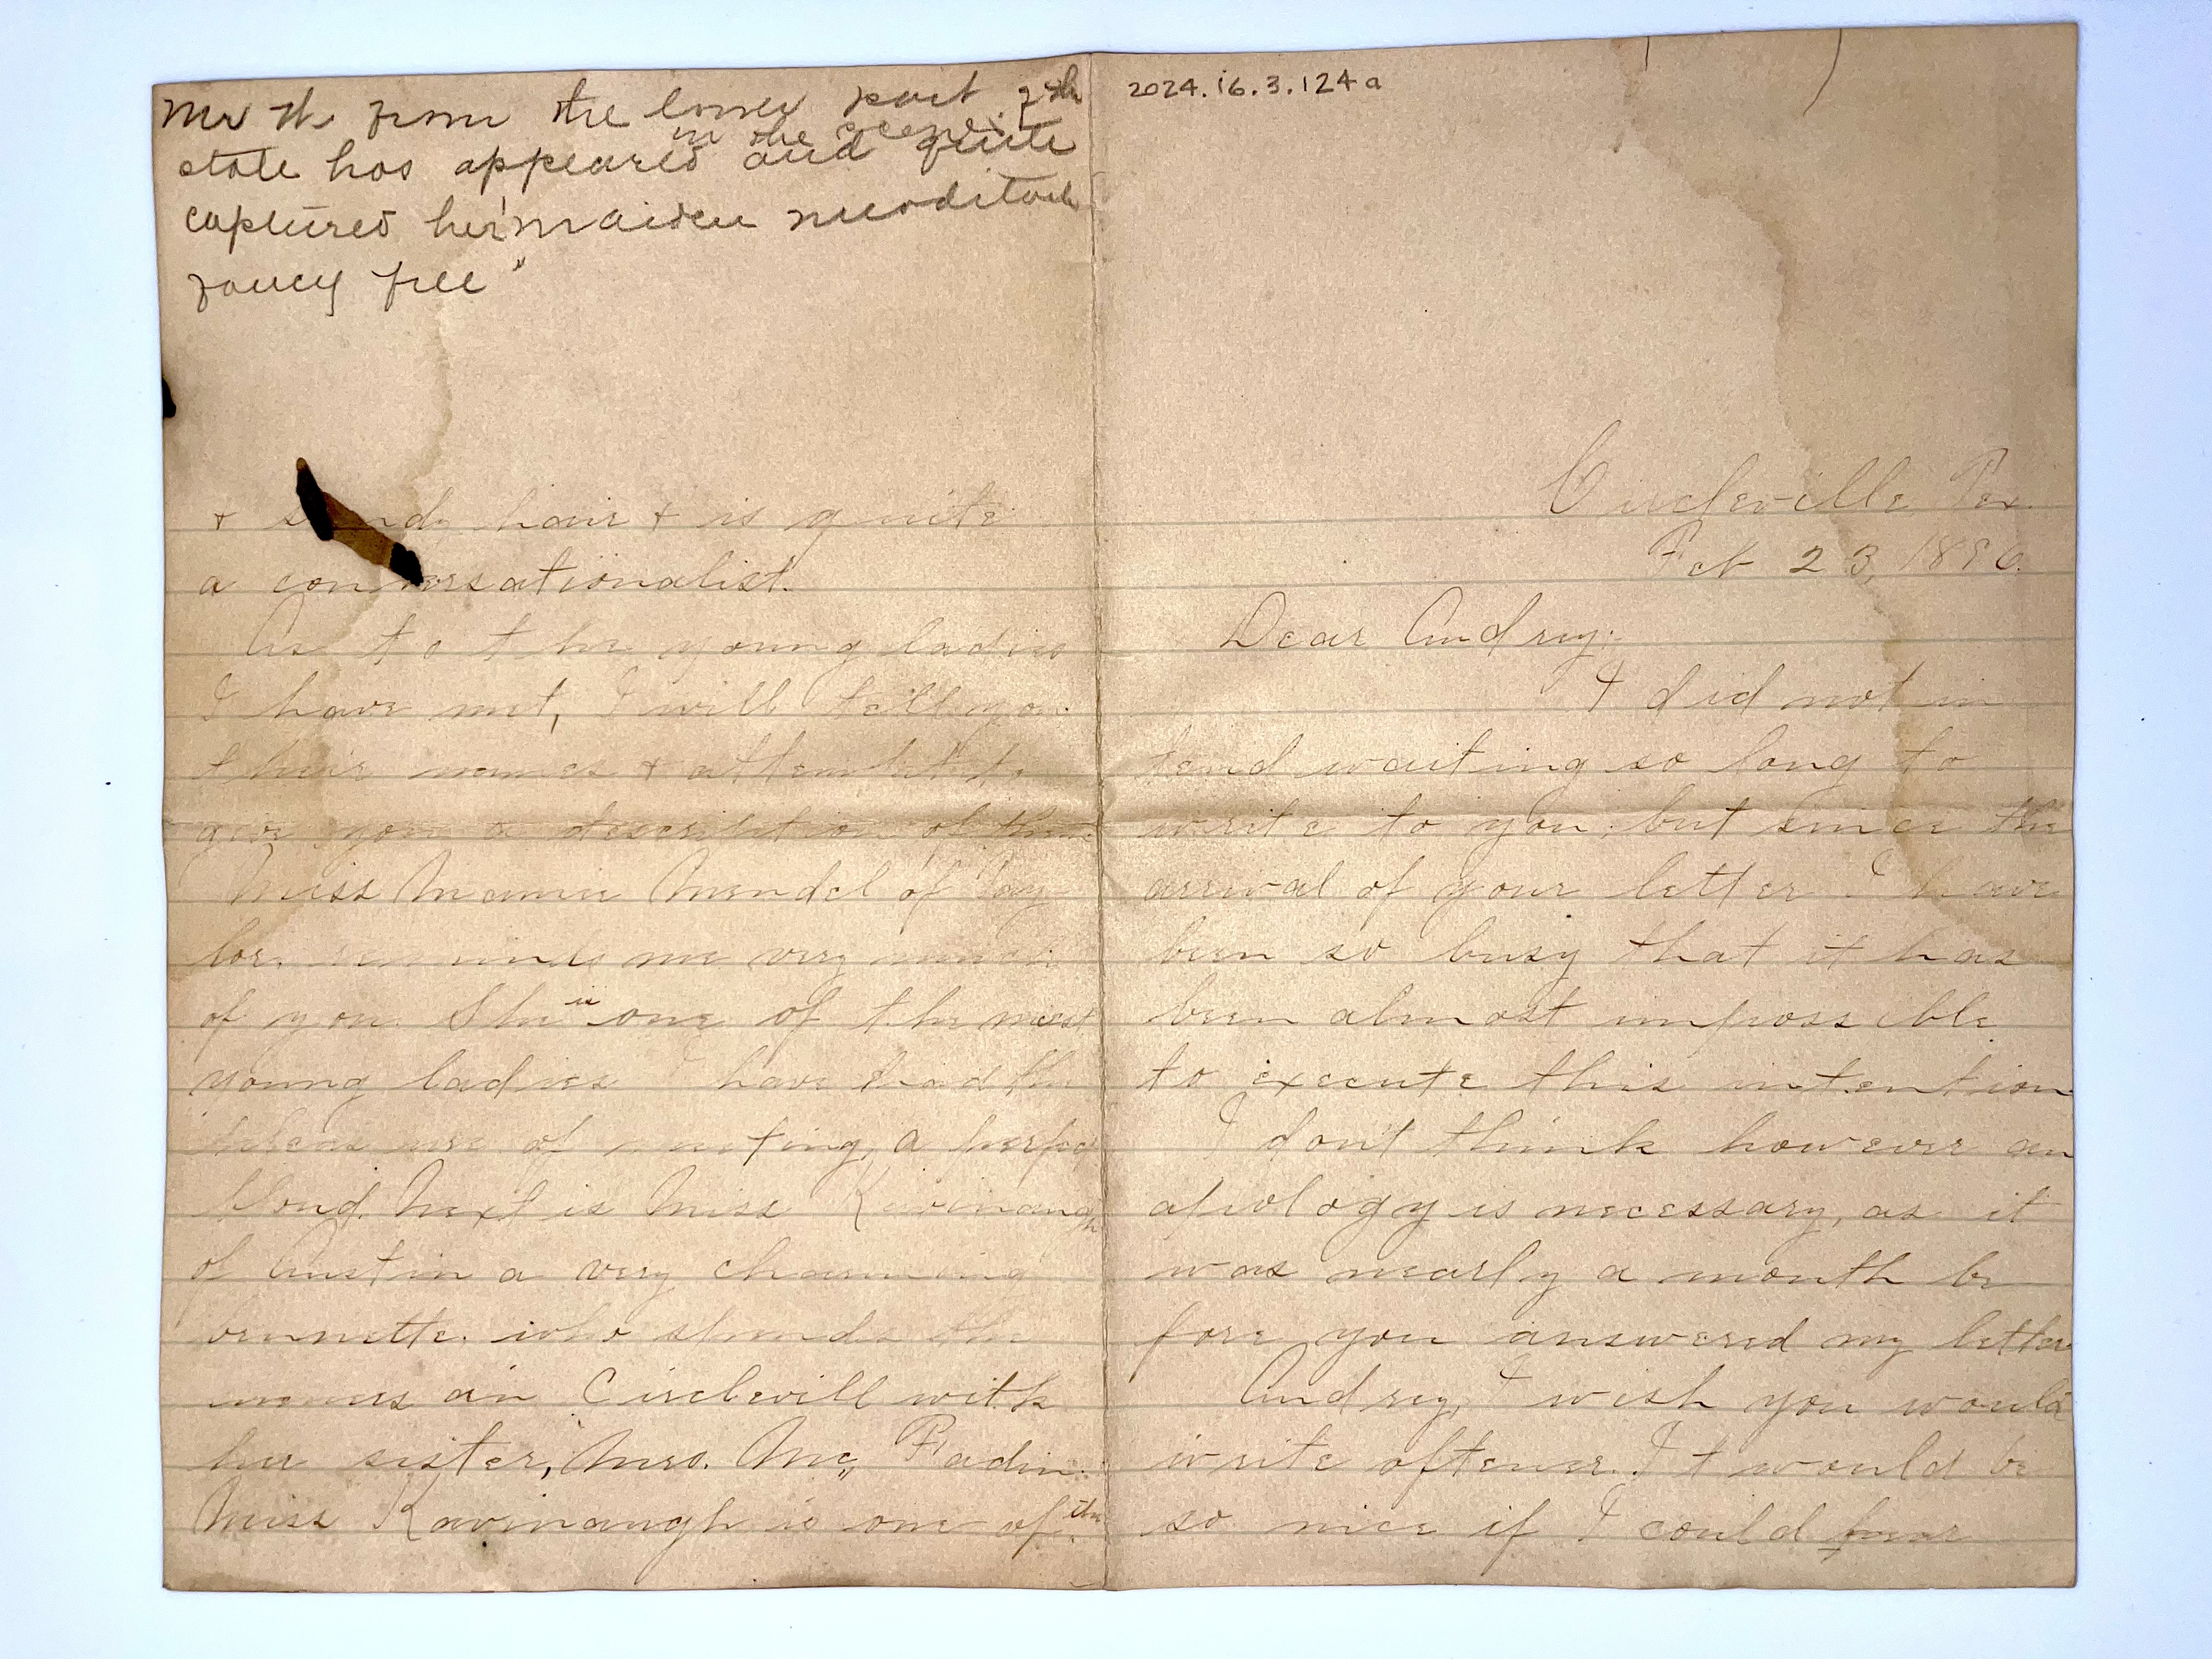 2024.16.3.124a
Circleville Tex.
Feb 23, 1896.
Dear Audrey:
I did not in
tend waiting so long to
write to you, but since the
arrival of your letter I have
been so busy that it has
been almost impossible
to execute this intention
I don't think however an
apology is necessary, as it
was nearly a month be
fore you answered my letter
Audrey, I wish you would
write oftener. It would be
so nice if I could hear
Mr H. from the lower part of the
in the scene
state has appeared and quite
captured her "maiden meditation
fancy free"
+ sandy hair + is quite
a conversationalist.
As to the young ladies
I have met, I will tell you
their names + attempt to
give you a description of them
Miss Mamie Mendel of Tay
lor. reminds me very much
of you. She is one of the nicest
young ladies I have had the
pleasure of meeting, a perfect
blond. Next is Miss Kavinaugh
of Austin a very charming
brunette. who spends the
in Circlevill with
her sister, Mrs. Mc Fadin.
Miss Kavinaugh is one of the